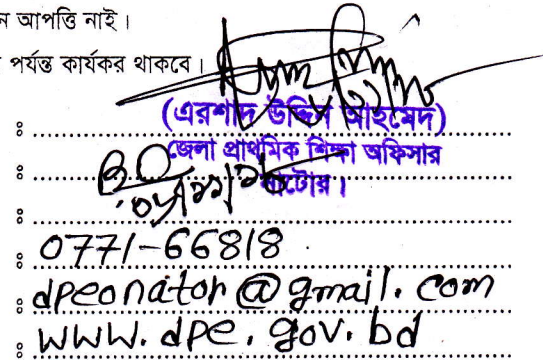 ন আপত্তি নাই।
পর্যন্ত কার্যকর থাকবে।
(এরশাদ উদ্দিন আহমেদ)
জেলা প্রাথমিক শিক্ষা অফিসার
নাটোর।
0771-66818
dpeonator@gmail.com
www.dpe.gov.bd